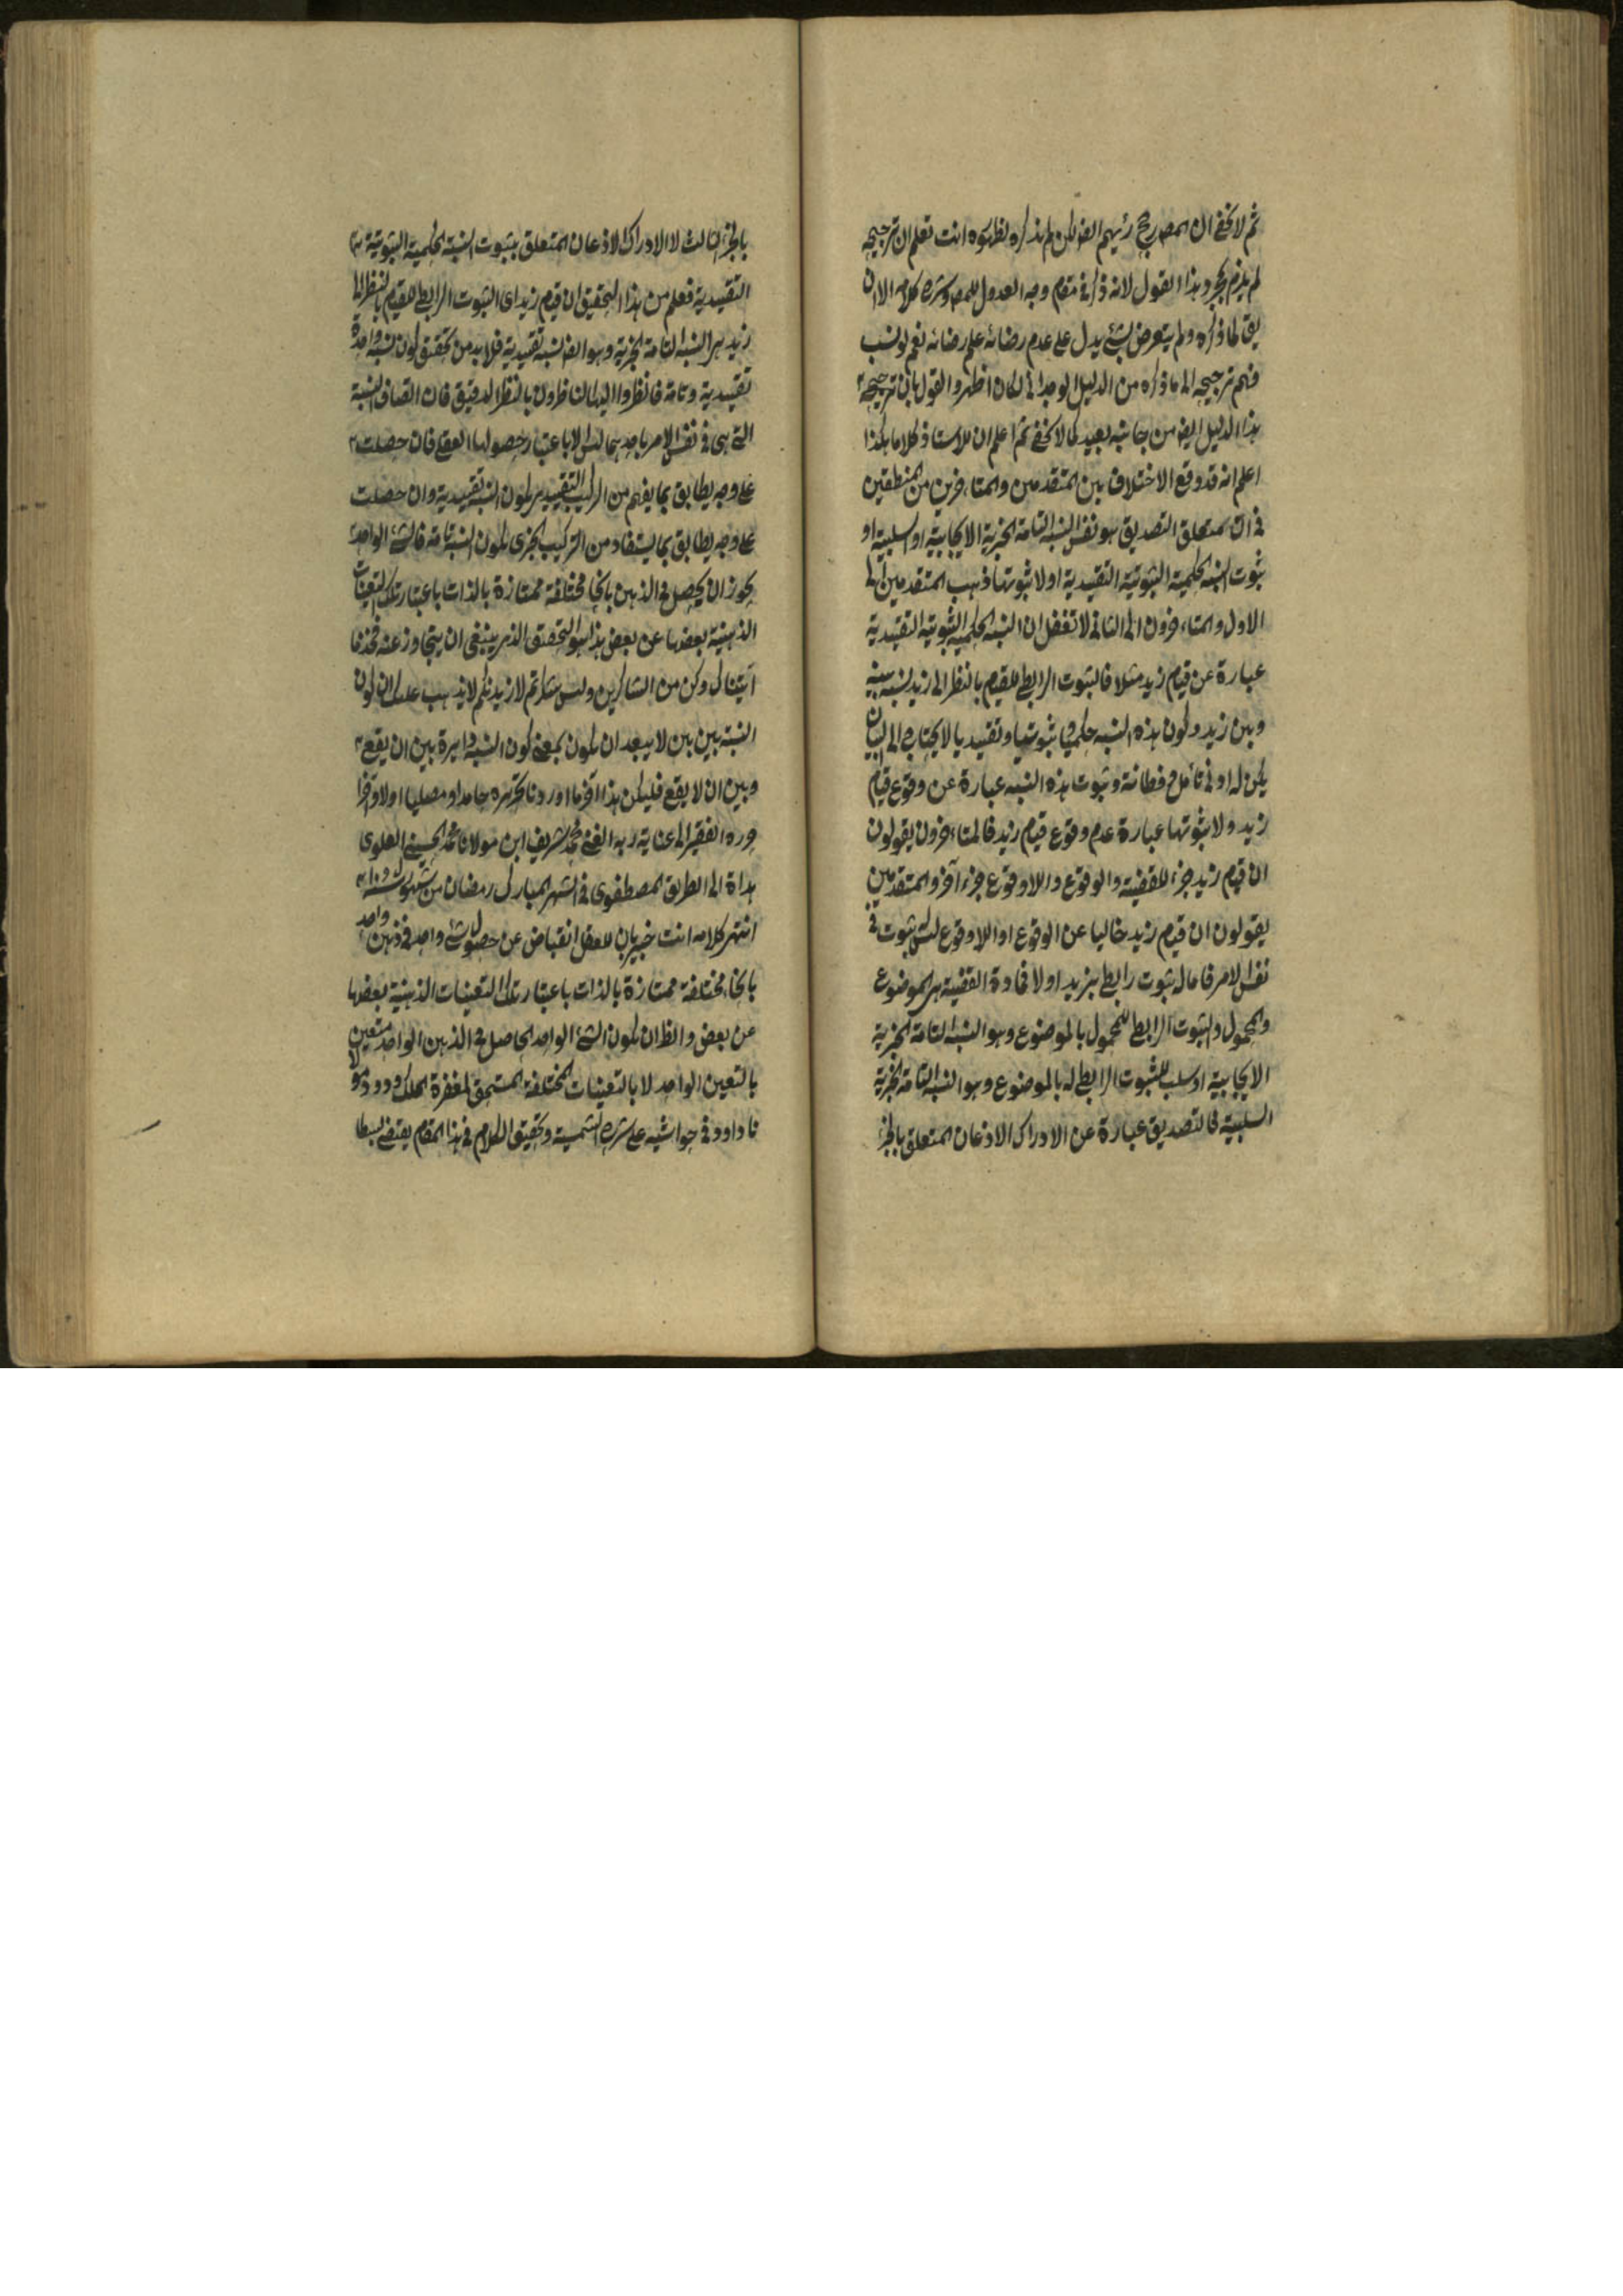 ثم لا يخفى ان المصرجح رئيهم ايضا لكن لم يذكره لظهوره انت تعلم ان ترجيحه
لم يلزم بمجرد هذا القول لانه ذكر في مقام وجه العدول للمص وشرح كلامه الا ان
يق لما ذكره ولم يتعرض بشئ يدل على عدم رضائه علم رضائه نعم لو نسب
فهم ترجيحه الى ما ذكره من الدليل الوجداني لكان اظهر والقول بان ترجيحه
هذا الدليل ايض من جانبه بعيد كما لا يخفى ثم اعلم ان للاستاذ كلاما هكذا
اعلم انه قد وقع الاختلاف بين المتقدمين والمتاخرين من المنطقين
في ان متعلق التصديق هو نفس النسبة التامة الخبرية الايجابية او السلبية او
ثبوت النسبة الحكمية الثبوتية التقييدية اولا ثبوتها ذهب المتقدمين الى
الاول والمتاخرون الى الثاني لا تغفل ان النسبة الحكمية الثبوتية التقييدية
عبارة عن قيام زيد مثلا فالثبوت الرابطي للقيام بالنظر الى زيد نسبة بينه
وبين زيد وكون هذه النسبة حكميا ثبوتيا وتقييديا لا يحتاج الى البيان
لمن له ادنى تأمل وفطانة وثبوت هذه النسبة عبارة عن وقوع قيام
زيد ولا ثبوتها عبارة عدم وقوع قيام زيد فالمتاخرون يقولون
ان قيام زيد جزء للقضية والوقوع واللاوقوع جزء آخر والمتقدمين
يقولون ان قيام زيد خاليا عن الوقوع او اللاوقوع ليس ثبوت في
نفس الامر فاما له ثبوت رابطي بزيد اولا فمادة القضية هي الموضوع
والمحمول والثبوت الرابطي للمحمول بالموضوع وهو النسبة التامة الخبرية
الايجابية او سلب الثبوت الرابطي له بالموضوع وهو النسبة التامة الخبرية
السلبية فالتصديق عبارة عن الادراك الاذعان المتعلق بالجز
بالجزء الثالث لا الادراك الاذعان المتعلق بثبوت النسبة الحكمية الثبوتية
التقييدية فعلم من هذا التحقيق ان قيام زيد اى الثبوت الرابطي للقيام بالنظر الى
زيد هي النسبة التامة الخبرية وهو ايضا نسبة تقييدية فلا بد من تحقيق كون نسبة واحدة
تقييدية وتامة فانظروا ايها الناظرون بالنظر الدقيق فان اتصاف النسبة
التي هي في نفس الامر باحديهما ليس الا باعتبار حصولها العقلي فان حصلت
على وجه يطابق بما يفهم من التركيب التقييدي يكون النسبة تقييدية وان حصلت
على وجه يطابق بما يستفاد من التركيب الخبرى يكون النسبة تامة فالشئ الواحد
يجوز ان يحصل في الذهن بانحاء مختلفة ممتازة بالذات باعتبار تلك التعينات
الذهنية بعضها عن بعض هذا هو التحقيق الذي ينبغي ان يتجاوز عنه فخذ ما
آتيناك وكن من الشاكرين ولئن شكرتم لازيدنكم لا يذهب عليك ان كون
النسبة بين بين لا يبعد ان يكون بمعنى كون النسبة دايرة بين ان يقع
وبين ان لا يقع فليكن هذا آخر ما اوردنا تحريره حامدا ومصليا اولا وآخرا
حرره الفقير الى عناية ربه الغني محمد شريف ابن مولانا محمد الحسيني العلوى
هداة الى الطريق المصطفوى في الشهر المبارك رمضان من شهور سنة
انتهى كلامه انت خبير بان للعقل انقباض عن حصول شئ واحد في ذهن واحد
بانحاء مختلفة ممتازة بالذات باعتبار تلك التعينات الذهنية بعضها
عن بعض والظ ان يكون الشئ الواحد الحاصل في الذهن الواحد متعين
بالتعين الواحد لا بالتعينات المختلفة المستحق لمغفرة الملك الودود مولا
نا داوود في حواشيه على شرح الشمسية وتحقيق الكلام في هذا المقام يقتضي بسطا